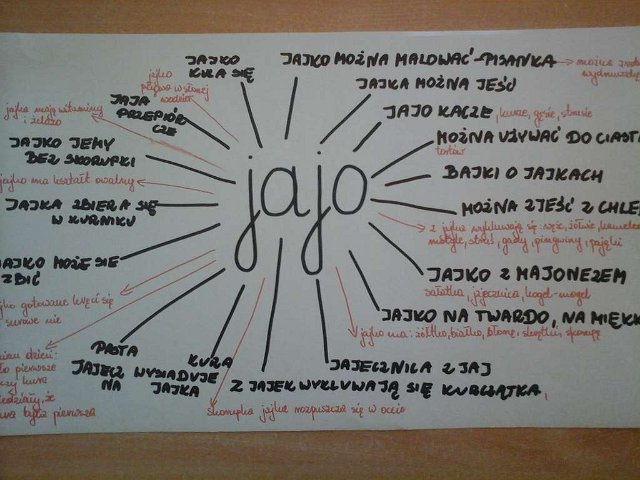 JAJKO
KULA SIĘ
JAJKO MOŻNA MALOWAĆ - PISANKA
można
wydmuszkę
JAJKA MOŻNA JEŚĆ
jajko
pływa w słonej
wodzie
JAJA
PRZEPIÓR
CZE
JAJO KACZE, kurze, gęsie, strusie
jajka mają witaminy
i żelazo
MOŻNA UŻYWAĆ DO CIASTA
tortów
JAJKO JEMY
BEZ SKORUPKI
BAJKI O JAJKACH
jajko ma kształt owalny
jajo
JAJKA ZBIERA SIĘ
W KURNIKU
MOŻNA ZJEŚĆ Z CHLE
z jajka wykluwają się: węże, żółwie, kameleo
motyle, struś, gady, pingwiny, pająki
JAJKO MOŻE SIĘ
ZBIĆ
JAJKO Z MAJONEZEM
sałatka, jajecznica, kogel-mogel
jko gotowane kręci się
surowe nie
JAJKO NA TWARDO, NA MIĘKK
jajko ma: żółtko, białko, błonę, skrętki, skorupę
dzień:
ło pierwsze
czy kura
iedziały, że
była pierwsza
PASTA
JAJECZ
NA
KURA
WYSIADUJE
JAJKA
JAJECZNICA Z JAJ
Z JAJEK WYKLUWAJĄ SIĘ KURCZĄTKA,
Skorupka jajka rozpuszcza się w occie